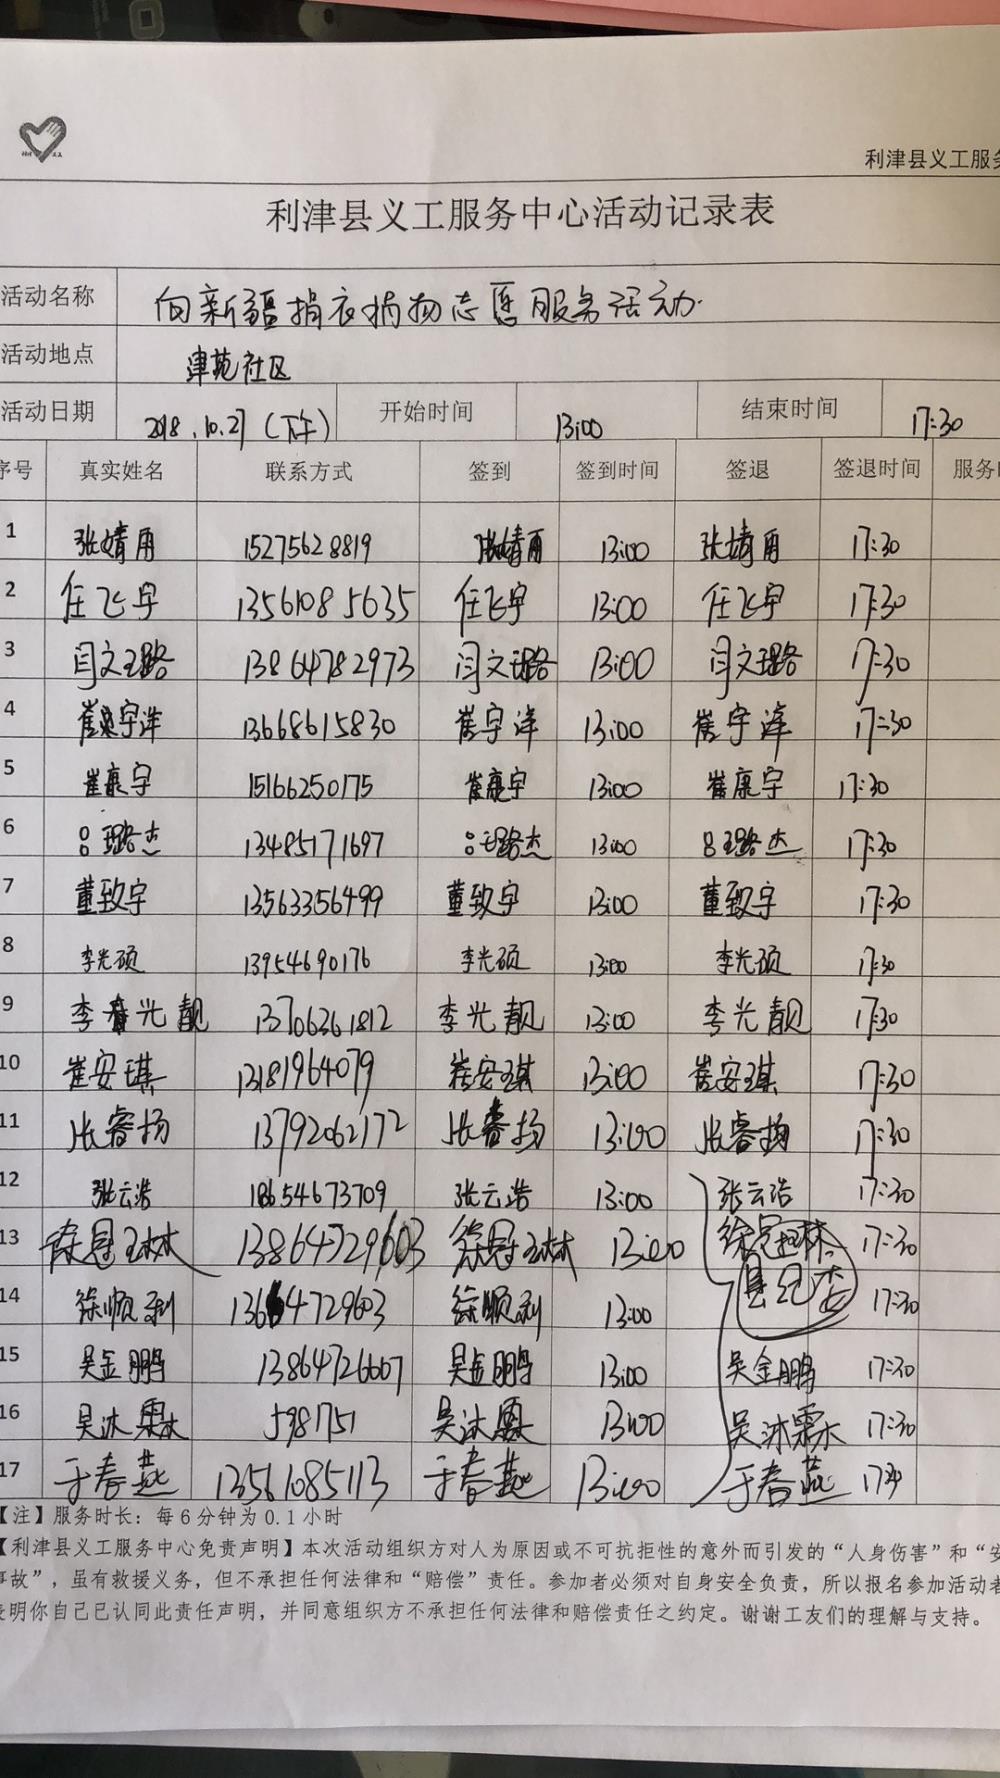 利津县义工服务
利津县义工服务中心活动记录表
活动名称 向新疆捐衣捐物志愿服务活动.
活动地点 津苑社区
活动日期 2018.10.27(下午) 开始时间 13:00 结束时间 17:30
序号 真实姓名 联系方式 签到 签到时间 签退 签退时间 服务
1 张婧雨 15275628819 张婧雨 13:00 张婧雨 17:30
2 任飞宇 13561085635 任飞宇 13:00 任飞宇 17:30
3 闫文璐 13864782973 闫文璐 13:00 闫文璐 17:30
4 崔宇泽 13668615830 崔宇泽 13:00 崔宇泽 17:30
5 崔康宇 15166250175 崔康宇 13:00 崔康宇 17:30
6 吕璐杰 13485171697 吕璐杰 13:00 吕璐杰 17:30
7 董致宇 13563356499 董致宇 13:00 董致宇 17:30
8 李光硕 13954690176 李光硕 13:00 李光硕 17:30
9 李光靓 13706361812 李光靓 13:00 李光靓 17:30
10 崔安琪 13181964079 崔安琪 13:00 崔安琪 17:30
11 张睿扬 13792062172 张睿扬 13:00 张睿扬 17:30
12 张云浩 18654673709 张云浩 13:00 张云浩 17:30
13 徐冠琳 13864729603 徐冠琳 13:00 徐冠琳 17:30
县纪委
14 徐顺利 13864729603 徐顺利 13:00 17:30
15 吴金鹏 13864726607 吴金鹏 13:00 吴金鹏 17:30
16 吴沐霖 598751 吴沐霖 13:00 吴沐霖 17:30
17 于春燕 13561085113 于春燕 13:00 于春燕
【注】服务时长:每6分钟为0.1小时
【利津县义工服务中心免责声明】本次活动组织方对人为原因或不可抗拒性的意外而引发的“人身伤害”和“安
事故”,虽有救援义务,但不承担任何法律和“赔偿”责任。参加者必须对自身安全负责,所以报名参加活动者
表明你自己已认同此责任声明,并同意组织方不承担任何法律和赔偿责任之约定。谢谢工友们的理解与支持。